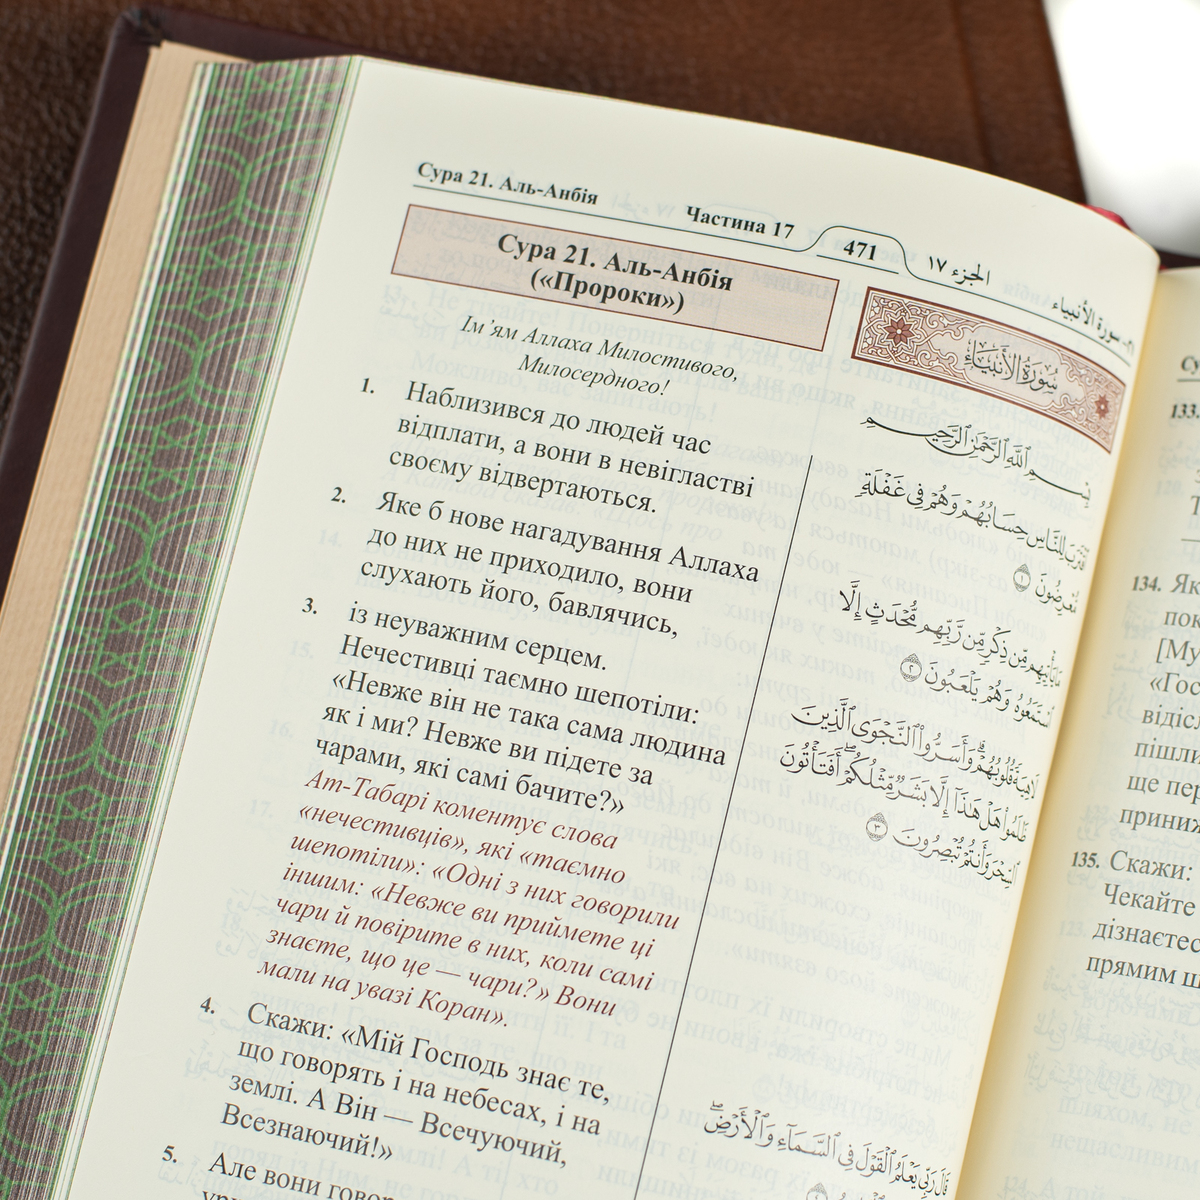 Сура 21. Аль-Анбія
Частина 17
471
الجزء ١٧
٢١- سورة الأنبياء
Сура 21. Аль-Анбія
(«Пророки»)
Ім’ям Аллаха Милостивого,
Милосердного!
1. Наблизився до людей час
відплати, а вони в невігластві
своєму відвертаються.
2. Яке б нове нагадування Аллаха
до них не приходило, вони
слухають його, бавлячись,
3. із неуважним серцем.
Нечестивці таємно шепотіли:
«Невже він не така сама людина
як і ми? Невже ви підете за
чарами, які самі бачите?»
Ат-Табарі коментує слова
«нечестивців», які «таємно
шепотіли»: «Одні з них говорили
іншим: «Невже ви приймете ці
чари й повірите в них, коли самі
знаєте, що це — чари?» Вони
мали на увазі Коран».
4. Скажи: «Мій Господь знає те,
що говорять і на небесах, і на
землі. А Він — Всечуючий,
Всезнаючий!»
5. Але вони говор
سُورَةُ الأَنبِيَاءِ
بِسْمِ ٱللَّهِ ٱلرَّحْمَٰنِ ٱلرَّحِيمِ
ٱقْتَرَبَ لِلنَّاسِ حِسَابُهُمْ وَهُمْ فِي غَفْلَةٍ
مُّعْرِضُونَ ١
مَا يَأْتِيهِم مِّن ذِكْرٍ مِّن رَّبِّهِم مُّحْدَثٍ إِلَّا
ٱسْتَمَعُوهُ وَهُمْ يَلْعَبُونَ ٢
لَاهِيَةً قُلُوبُهُمْ وَأَسَرُّوا۟ ٱلنَّجْوَى ٱلَّذِينَ
ظَلَمُوا۟ هَلْ هَٰذَآ إِلَّا بَشَرٌ مِّثْلُكُمْ أَفَتَأْتُونَ
ٱلسِّحْرَ وَأَنتُمْ تُبْصِرُونَ ٣
قَالَ رَبِّي يَعْلَمُ ٱلْقَوْلَ فِي ٱلسَّمَآءِ وَٱلْأَرْضِ
133.
134. Як
пок
[Му
«Гос
відісл
пішли
ще пер
приниж
135. Скажи:
Чекайте
дізнаєтес
прямим ш